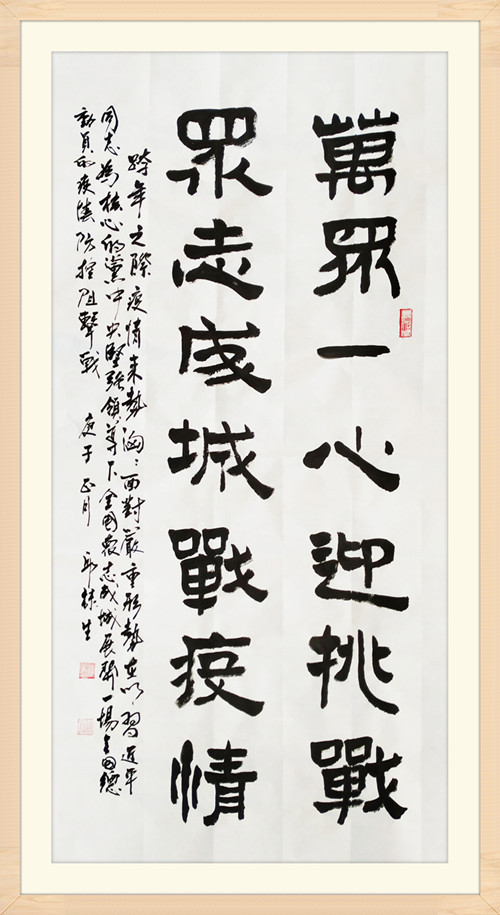 萬眾一心迎挑戰
眾志成城戰疫情
跨年之際疫情来勢洶〻面對嚴重形勢在以習近平
同志為核心的黨中央堅强領導下全國眾志成城展開一場全國總
動員的疫情防控阻擊戰 庚子正月